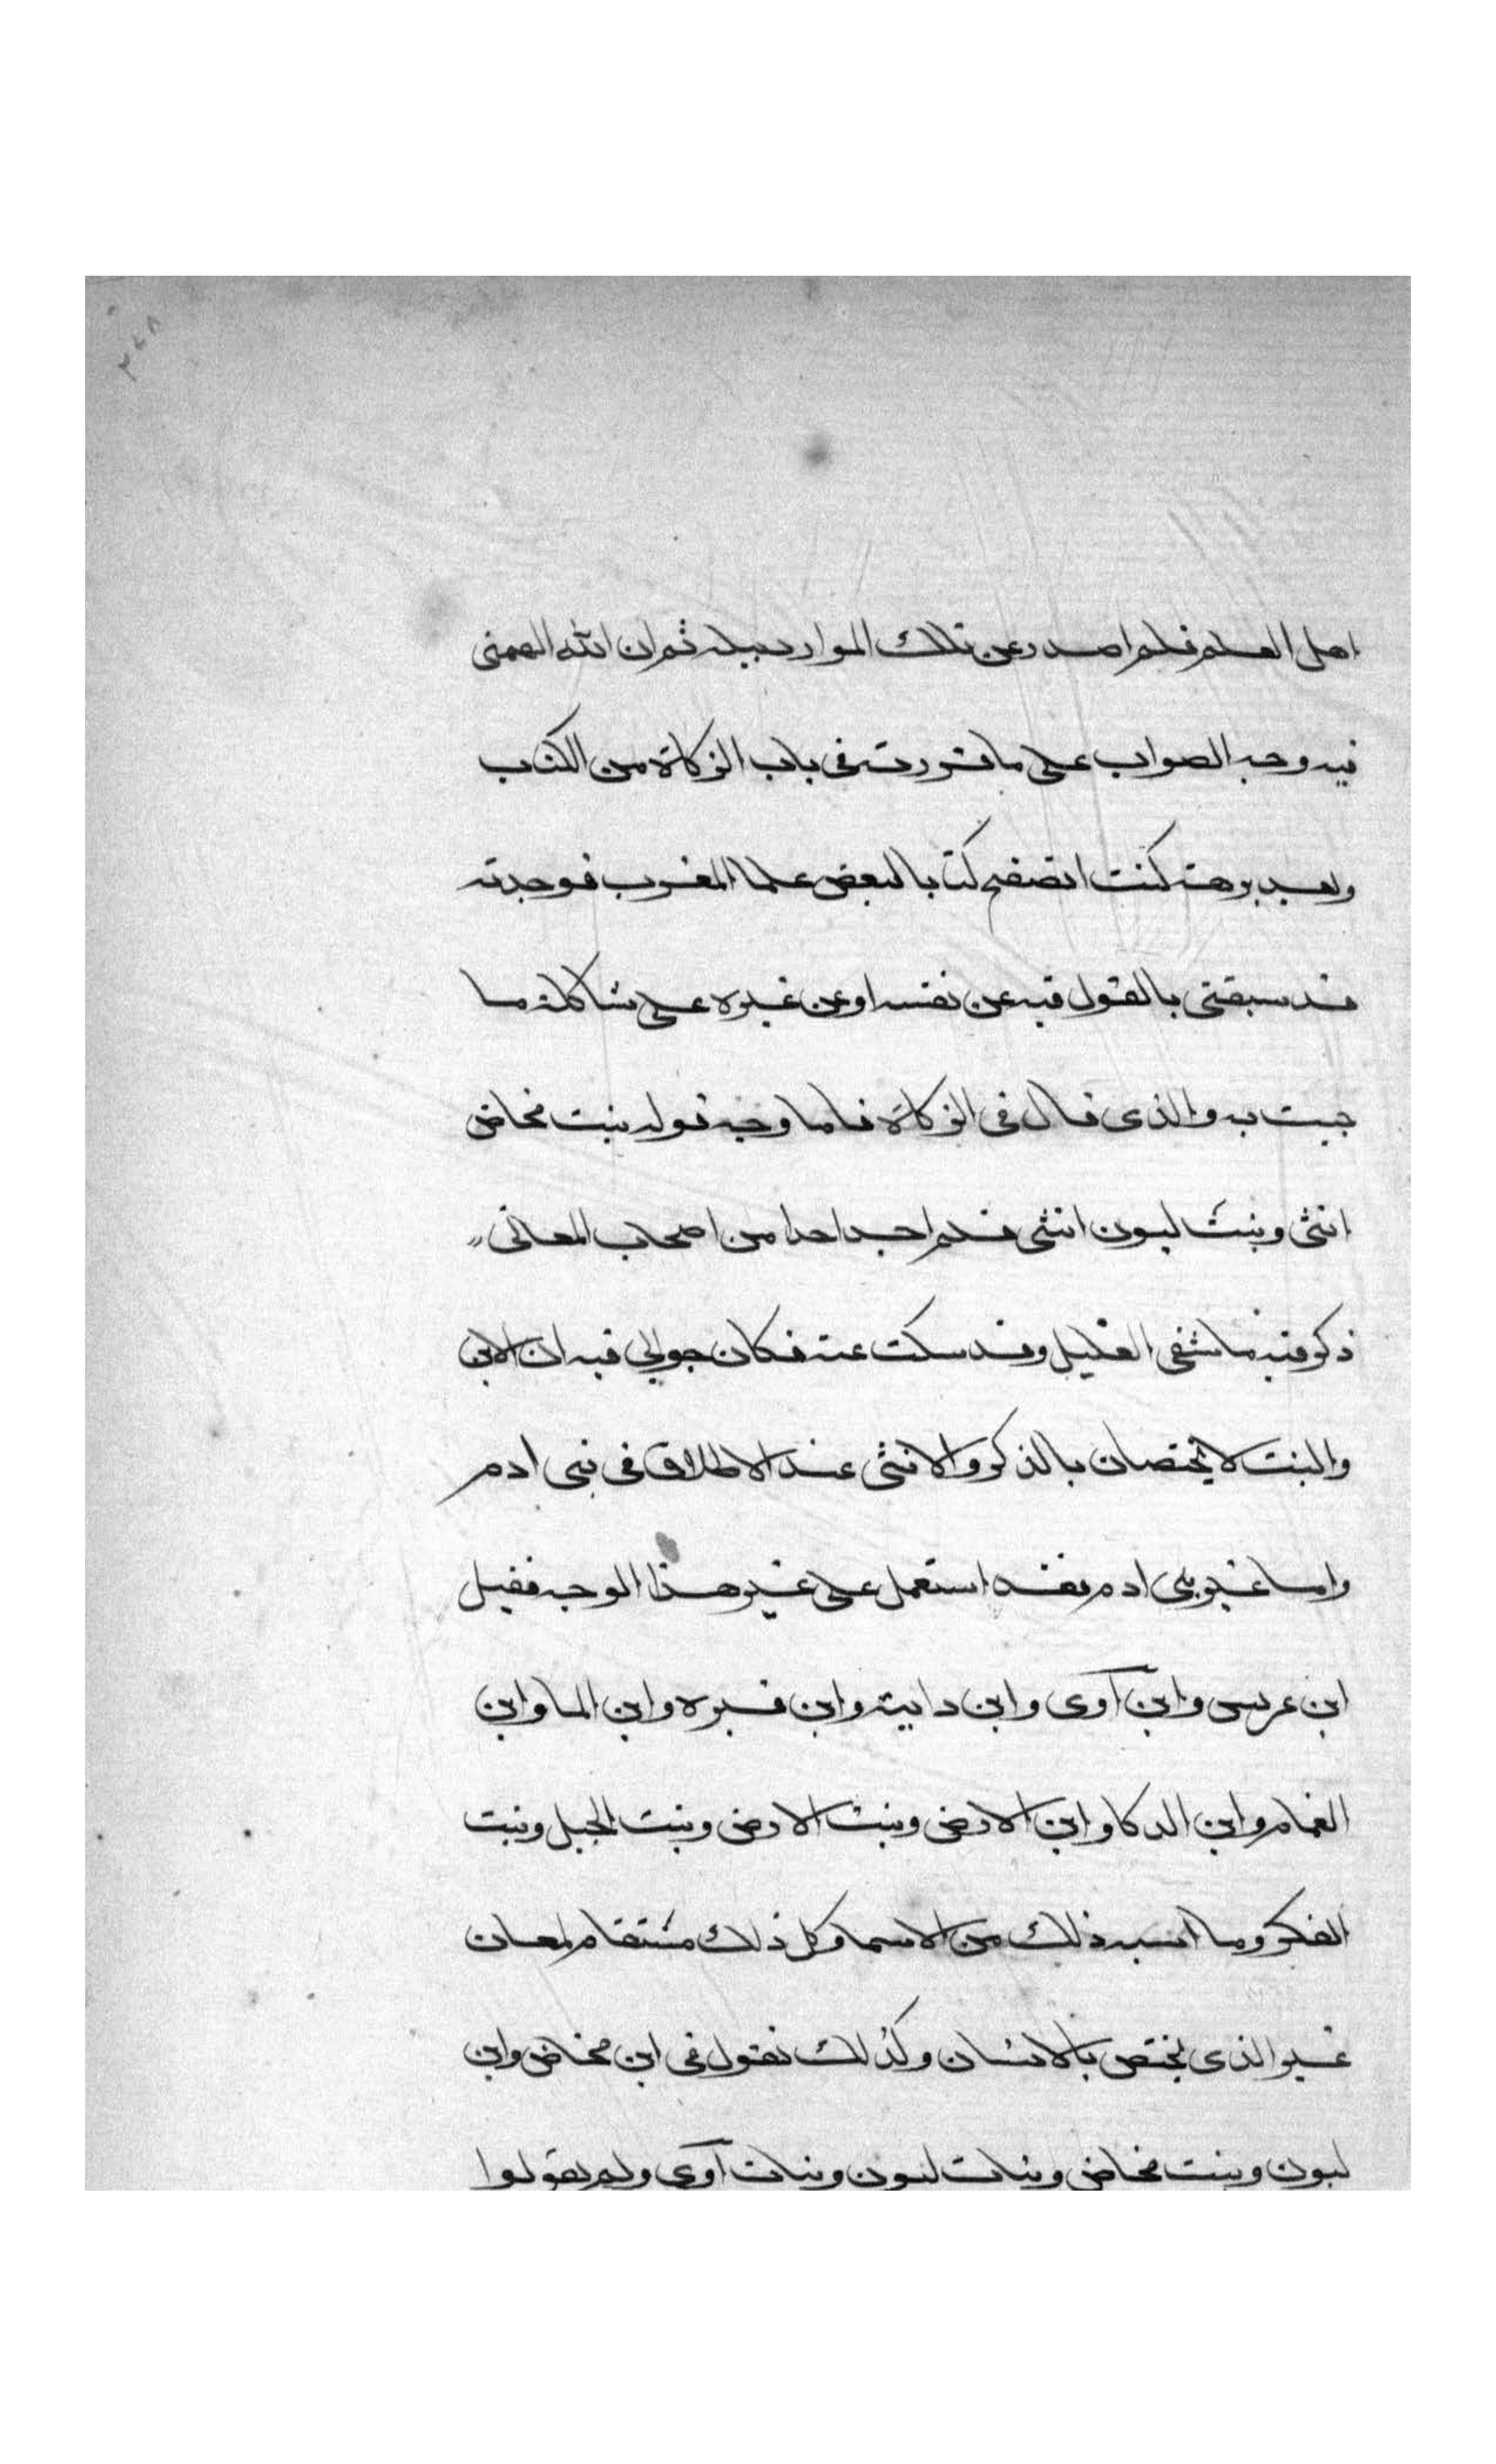 ٣٧٨
اهل العلم فلم اصدر عن تلك الموارد ببلة ثم ان الله الهمنى
فيه وجه الصواب على ما قررته فى باب الزكاة من الكتاب
وبعد برهة كنت اتصفح كتابا لبعض علما المغرب فوجدته
قد سبقنى بالقول فيه عن نفسه او عن غيره على شاكلة ما
جيت به والذى قال فى الزكاة فاما وجه قوله بنت مخاض
انثى وبنت لبون انثى فلم اجد احدا من اصحاب المعانى
ذكر فيه ما شفى الغليل وقد سكت عنه فكان جوابى فيه ان الابن
والبنت لا يختصان بالذكر والانثى عند الاطلاق فى بنى ادم
واما غير بنى ادم فقد استعمل على غير هذا الوجه فقيل
ابن عرس وابن آوى وابن داية وابن قبرة وابن الما وابن
الغمام وابن الدكا وابن الارض وبنت الارض وبنت الجبل وبنت
الفكر وما اشبه ذلك من الاسما وكل ذلك مشتقا لمعان
غير الذى يختص بالانسان وكذلك نقول فى ابن مخاض وابن
لبون وبنت مخاض وبنات لبون وبنات آوى ولم يقولوا